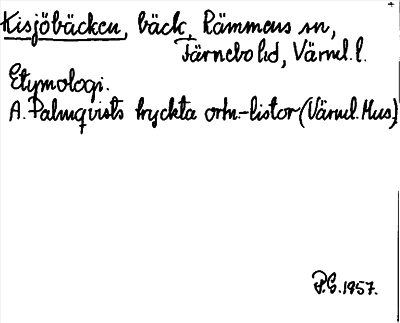 Kisjöbäcken, bäck, Rämmens sn,
Färnebo hd, Värml. l.
Etymologi.
A. Palmqvists tryckta ortn.-listor (Värml. Mus)
P.G. 1957.